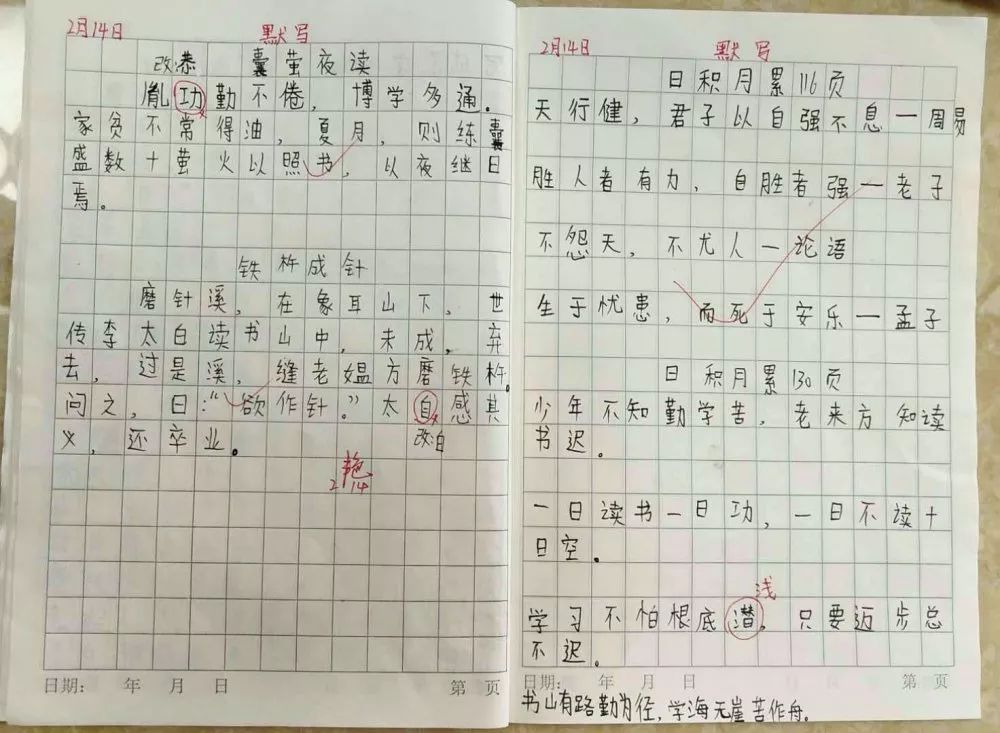 2月14日
默写
改恭
囊萤夜读
胤功勤不倦，博学多通。
家贫不常得油，夏月，则练囊
盛数十萤火以照书，以夜继日
焉。
铁杵成针
磨针溪，在象耳山下，世
传李太白读书山中，未成，弃
去，过是溪，缝老媪方磨铁杵。
问之，曰：“欲作针。”太自感其
义，还卒业。
改白
艳
2 14
日期： 年 月 日
第 页
2月14日
默写
日积月累116页
天行健，君子以自强不息—周易
胜人者有力，自胜者强—老子
不怨天，不尤人—论语
生于忧患，而死于安乐—孟子
日积月累130页
少年不知勤学苦，老来方知读
书迟。
一日读书一日功，一日不读十
日空。
浅
学习不怕根底潜，只要迈步总
不迟。
日期： 年 月 日
第 页
书山有路勤为径，学海无崖苦作舟。